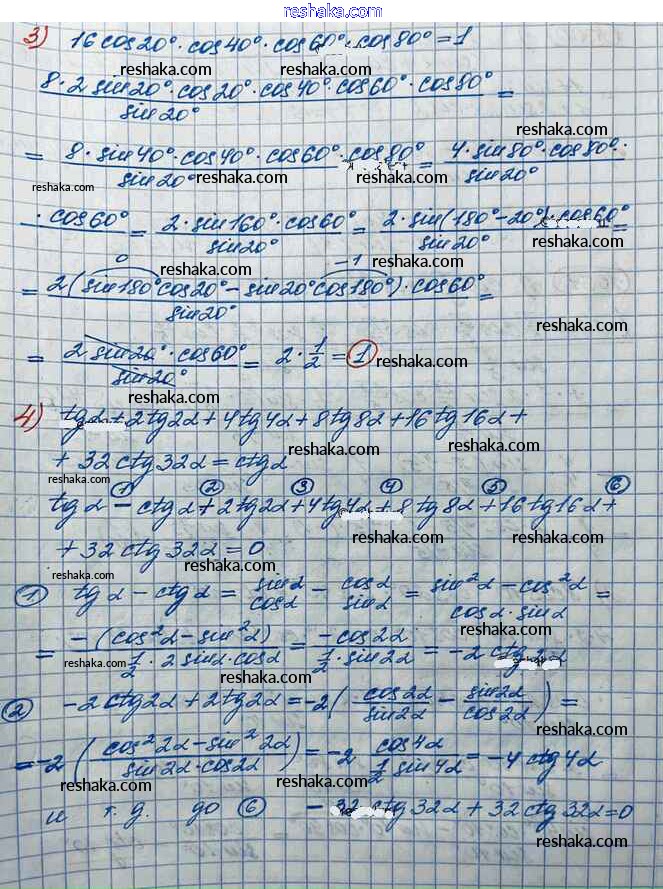 www.reshaka.com
3) 16 cos20°·cos40°·cos60°·cos80°=1
reshaka.com reshaka.com
8·2 sin20°·cos20°·cos40°·cos60°·cos80° =
sin20°
reshaka.com reshaka.com
= 8·sin40°·cos40°·cos60°·cos80° = 4·sin80°·cos80°·
sin20° sin20°
reshaka.com reshaka.com reshaka.com
·cos60° = 2·sin160°·cos60° = 2·sin(180°-20°)·cos60° =
sin20° sin20°
reshaka.com reshaka.com
0 -1
= 2(sin180°cos20°-sin20°cos180°)·cos60° =
sin20°
reshaka.com reshaka.com
= 2 sin20°·cos60° = 2·1/2 = 1
sin20°
reshaka.com reshaka.com
4) tgα+2tg2α+4tg4α+8tg8α+16tg16α+
+ 32 ctg32α=ctgα
reshaka.com reshaka.com
1 2 3 4 5 6
tgα-ctgα+2tg2α+4tg4α+8tg8α+16tg16α+
reshaka.com
+ 32 ctg32α=0
reshaka.com reshaka.com
1 tgα-ctgα = sinα/cosα - cosα/sinα = sin²α-cos²α / cosα·sinα =
reshaka.com reshaka.com
= -(cos²α-sin²α) / 1/2·2sinα·cosα = -cos2α / 1/2·sin2α = -2ctg2α
reshaka.com reshaka.com reshaka.com
2 -2ctg2α+2tg2α=-2(cos2α/sin2α - sin2α/cos2α) =
reshaka.com reshaka.com
=-2(cos²2α-sin²2α / sin2α·cos2α) = -2 cos4α / 1/2 sin4α = -4ctg4α
reshaka.com reshaka.com
и т.д. до 6 -32ctg32α+32ctg32α=0
reshaka.com reshaka.com
reshaka.com